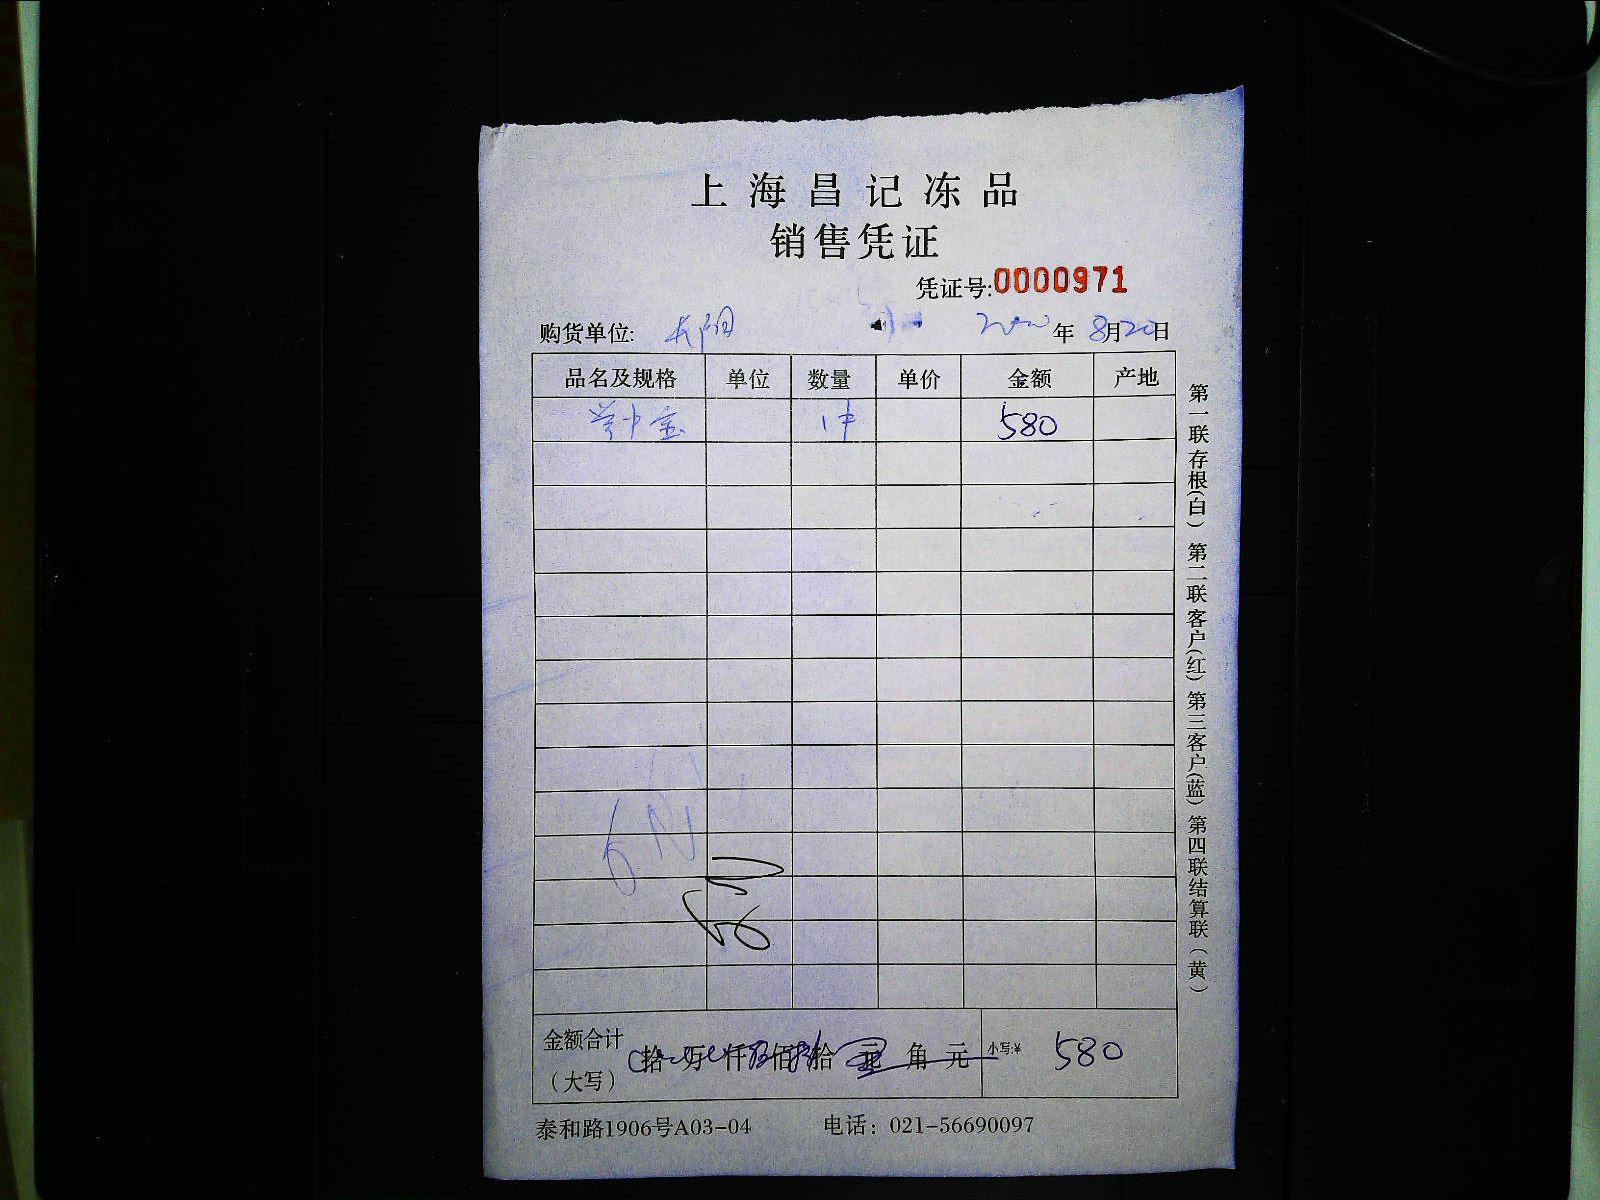 上海昌记冻品
销售凭证
凭证号:0000971
购货单位: 年 8月20日
品名及规格 单位 数量 单价 金额 产地
1件 580
金额合计(大写) 拾 万 仟 佰 拾 元 角 元 小写:¥ 580
泰和路1906号A03-04 电话：021-56690097
第一联存根(白) 第二联客户(红) 第三客户(蓝) 第四联结算联(黄)